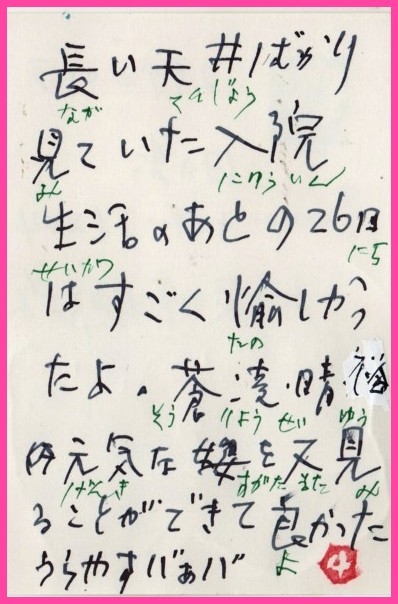 長い天井ばかり
なが てんじょう
見ていた入院
み にゅういん
生活のあとの26日
せいかつ にち
はすごく愉しかっ
たの
たよ。蒼・凌・晴・
そう りょう せい ゆう
の元気な姿を又見
げんき すがた また み
ることができて良かった
よ
うらやすばぁば 4